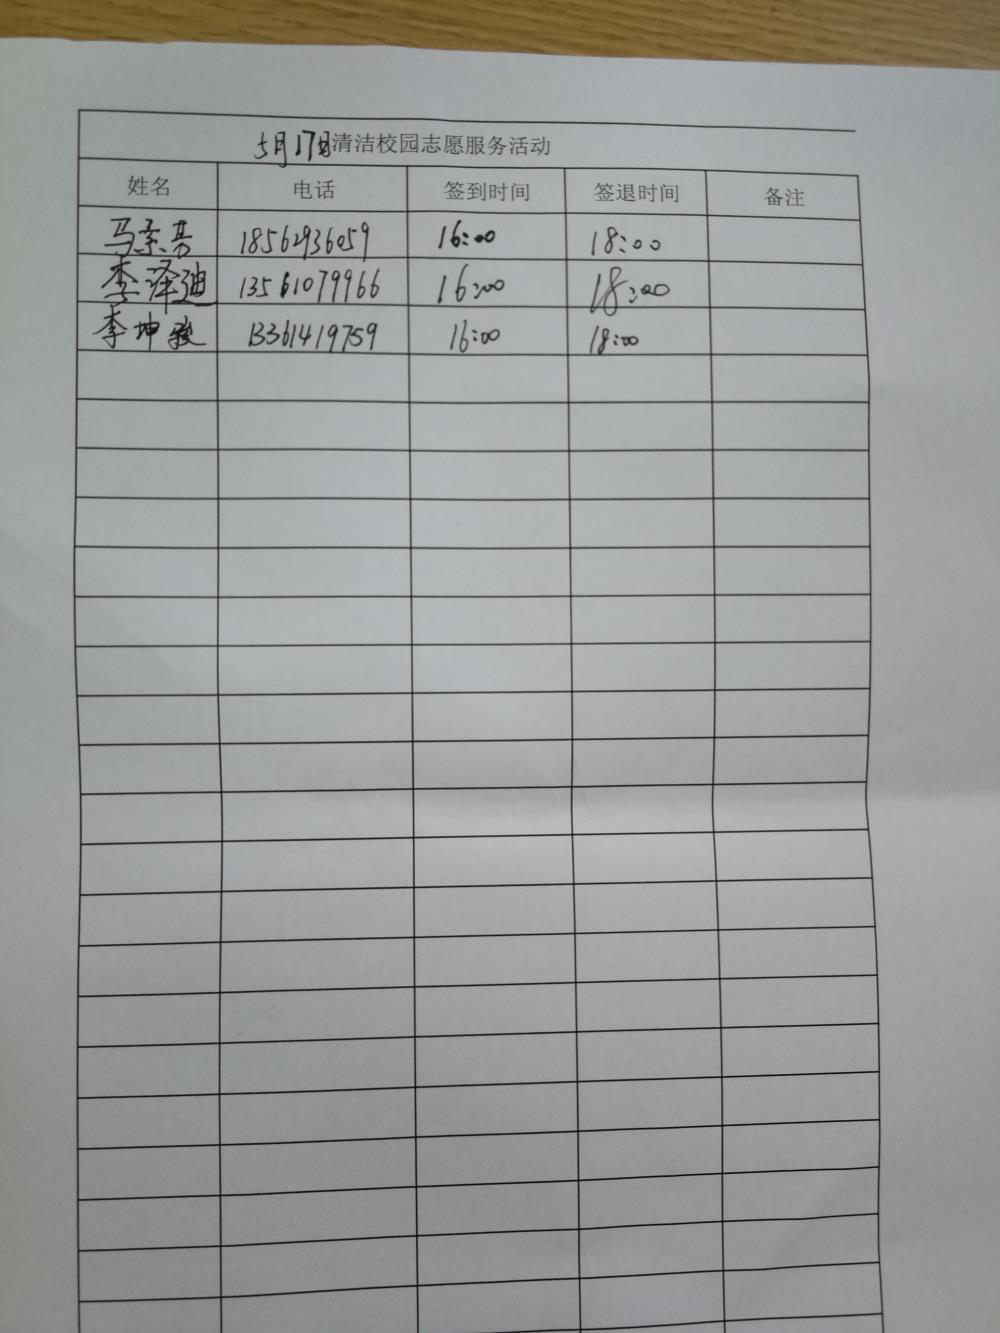 5月17日清洁校园志愿服务活动
姓名 电话 签到时间 签退时间 备注
18562936059 16:00 18:00
李泽迪 13561079966 16:00 18:00
李坤骏 13361419759 16:00 18:00